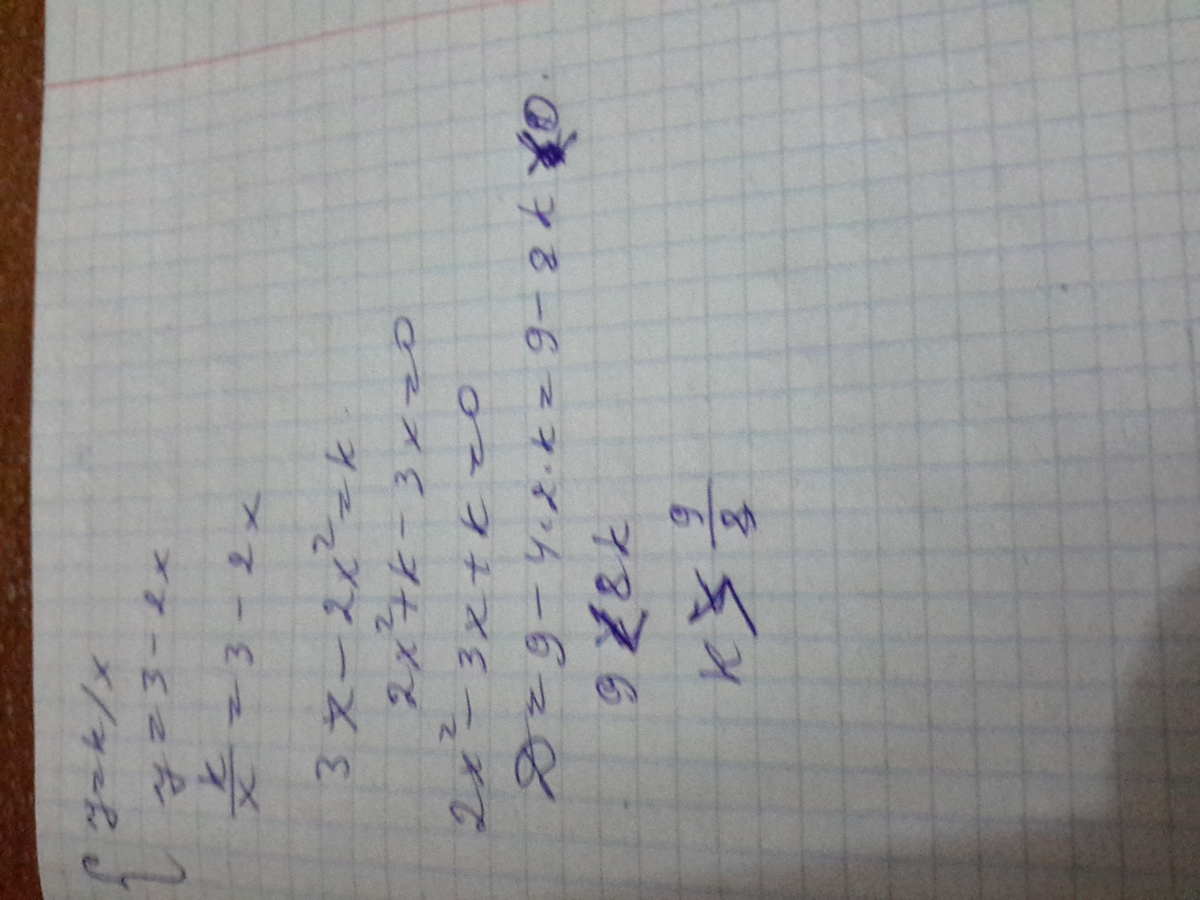 { y = k/x
y = 3 - 2x
k/x = 3 - 2x
3x - 2x² = k
2x² + k - 3x = 0
2x² - 3x + k = 0
D = 9 - 4·2·k = 9 - 8k 0.
9 8k
k 9/8